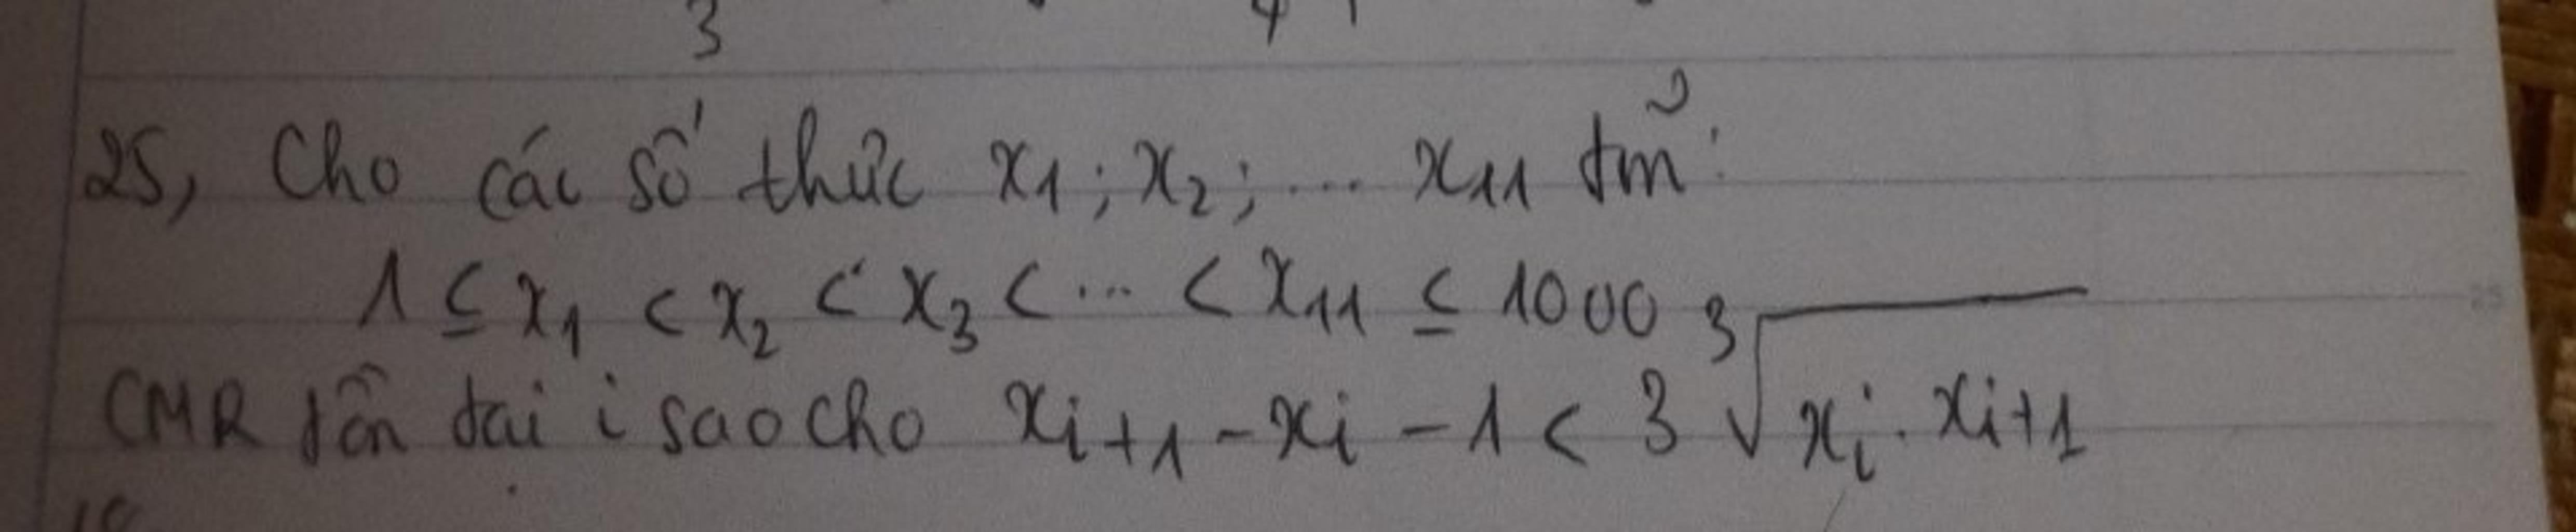 3 4
25, Cho các số thức x₁; x₂; ... x₁₁ tm̃:
1 ≤ x₁ < x₂ < x₃ < ... < x₁₁ ≤ 1000
CMR tồn tai i sao cho xᵢ₊₁ - xᵢ - 1 < 3 ∛(xᵢ . xᵢ₊₁)